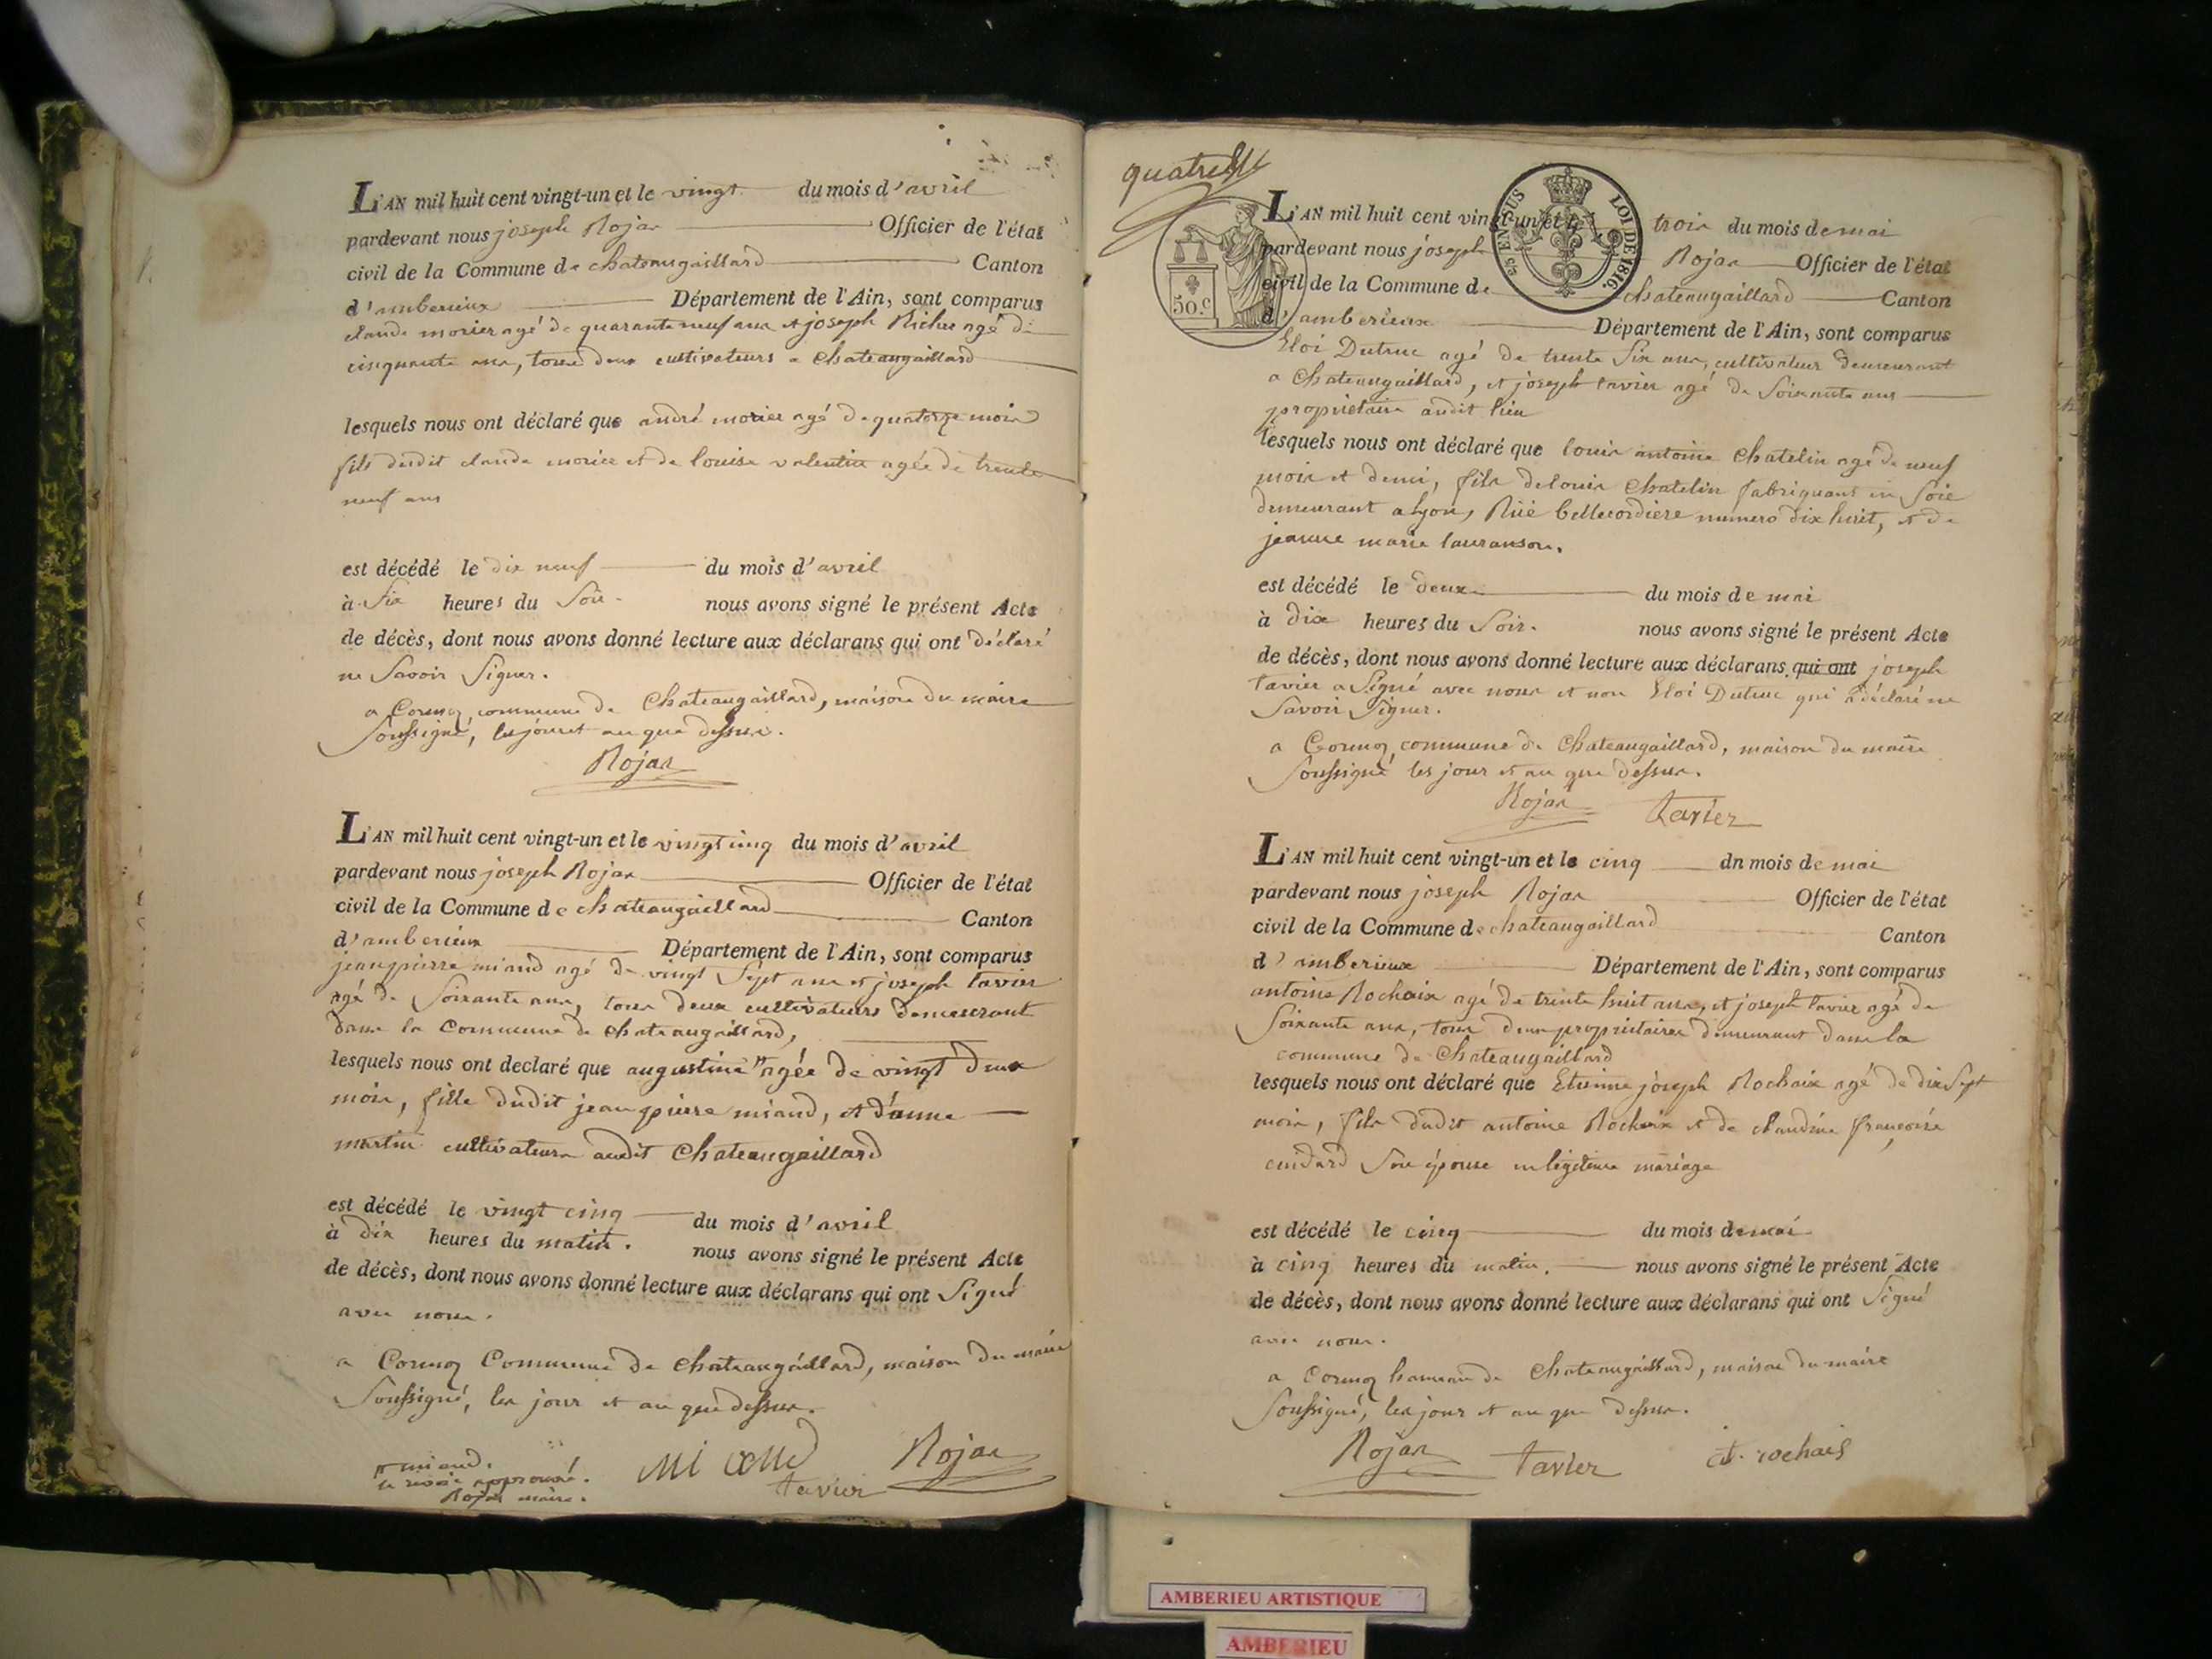 L'AN mil huit cent vingt-un et le vingt du mois d'avril
pardevant nous joseph Rojar Officier de l'état
civil de la Commune de chateaugaillard Canton
d'amberieux Département de l'Ain, sont comparus
claude morier agé de quarante neuf ans et joseph Richer agé de
cinquante ans, tous deux cultivateurs a chateaugaillard
lesquels nous ont déclaré que andré morier agé de quatorze mois
fils dudit claude morier et de louise valentin agée de trente
neuf ans
est décédé le dix neuf du mois d'avril
à Six heures du Soir. nous avons signé le présent Acte
de décès, dont nous avons donné lecture aux déclarans qui ont déclaré
ne Savoir Signer.
a Cormoz, commune de Chateaugaillard, maison du maire
Soussigné, les jour et an que dessus.
Rojar
L'AN mil huit cent vingt-un et le vingt cinq du mois d'avril
pardevant nous joseph Rojar Officier de l'état
civil de la Commune de chateaugaillard Canton
d'amberieux Département de l'Ain, sont comparus
jean pierre miand agé de vingt Sept ans et joseph tavier
agé de Soixante ans, tous deux cultivateurs demeurant
dans la Commune de chateaugaillard,
lesquels nous ont declaré que augustine # agée de vingt deux
mois, fille dudit jean pierre miand, et d'anne
martin cultivateurs audit Chateaugaillard
est décédé le vingt cinq du mois d'avril
à dix heures du matin. nous avons signé le présent Acte
de décès, dont nous avons donné lecture aux déclarans qui ont Signé
avec nous.
a Cormoz Commune de chateaugaillard, maison du maire
Soussigné, les jour et an que dessus.
# miand.
le renvoi approuvé.
Rojar maire.
tavier Rojar
quatre
EN SUS LOI DE 1816.
50.c
L'AN mil huit cent vingt-un et le trois du mois de mai
pardevant nous joseph Rojar Officier de l'état
civil de la Commune de chateaugaillard Canton
d'amberieux Département de l'Ain, sont comparus
Eloi Dutruc agé de trente Six ans, cultivateur demeurant
a Chateaugaillard, et joseph tavier agé de Soixante ans
propriétaire audit lieu
lesquels nous ont déclaré que louis antoine Chatelin agé de neuf
mois et demi, fils de louis Chatelin fabriquant en Soie
demeurant a lyon, Rüe bellecordiere numero dix huit, et de
jeanne marie lauranson.
est décédé le deux du mois de mai
à dix heures du Soir. nous avons signé le présent Acte
de décès, dont nous avons donné lecture aux déclarans qui ont joseph
tavier a Signé avec nous et non Eloi Dutruc qui a déclaré ne
Savoir Signer.
a Cormoz commune de Chateaugaillard, maison du maire
Soussigné les jour et an que dessus.
Rojar tavier
L'AN mil huit cent vingt-un et le cinq dn mois de mai
pardevant nous joseph Rojar Officier de l'état
civil de la Commune de chateaugaillard Canton
d'amberieux Département de l'Ain, sont comparus
antoine Rochaix agé de trente huit ans, et joseph tavier agé de
Soixante ans, tous deux propriétaires demeurant dans la
commune de Chateaugaillard
lesquels nous ont déclaré que Etienne joseph Rochaix agé de dix Sept
mois, fils dudit antoine Rochaix et de claudine françoise
cudard Son épouse en légitime mariage
est décédé le cinq du mois de mai
à cinq heures du matin. nous avons signé le présent Acte
de décès, dont nous avons donné lecture aux déclarans qui ont Signé
avec nous.
a Cormoz hameau de Chateaugaillard, maison du maire
Soussigné, les jour et an que dessus.
Rojar tavier at. rochais
AMBERIEU ARTISTIQUE
AMBERIEU